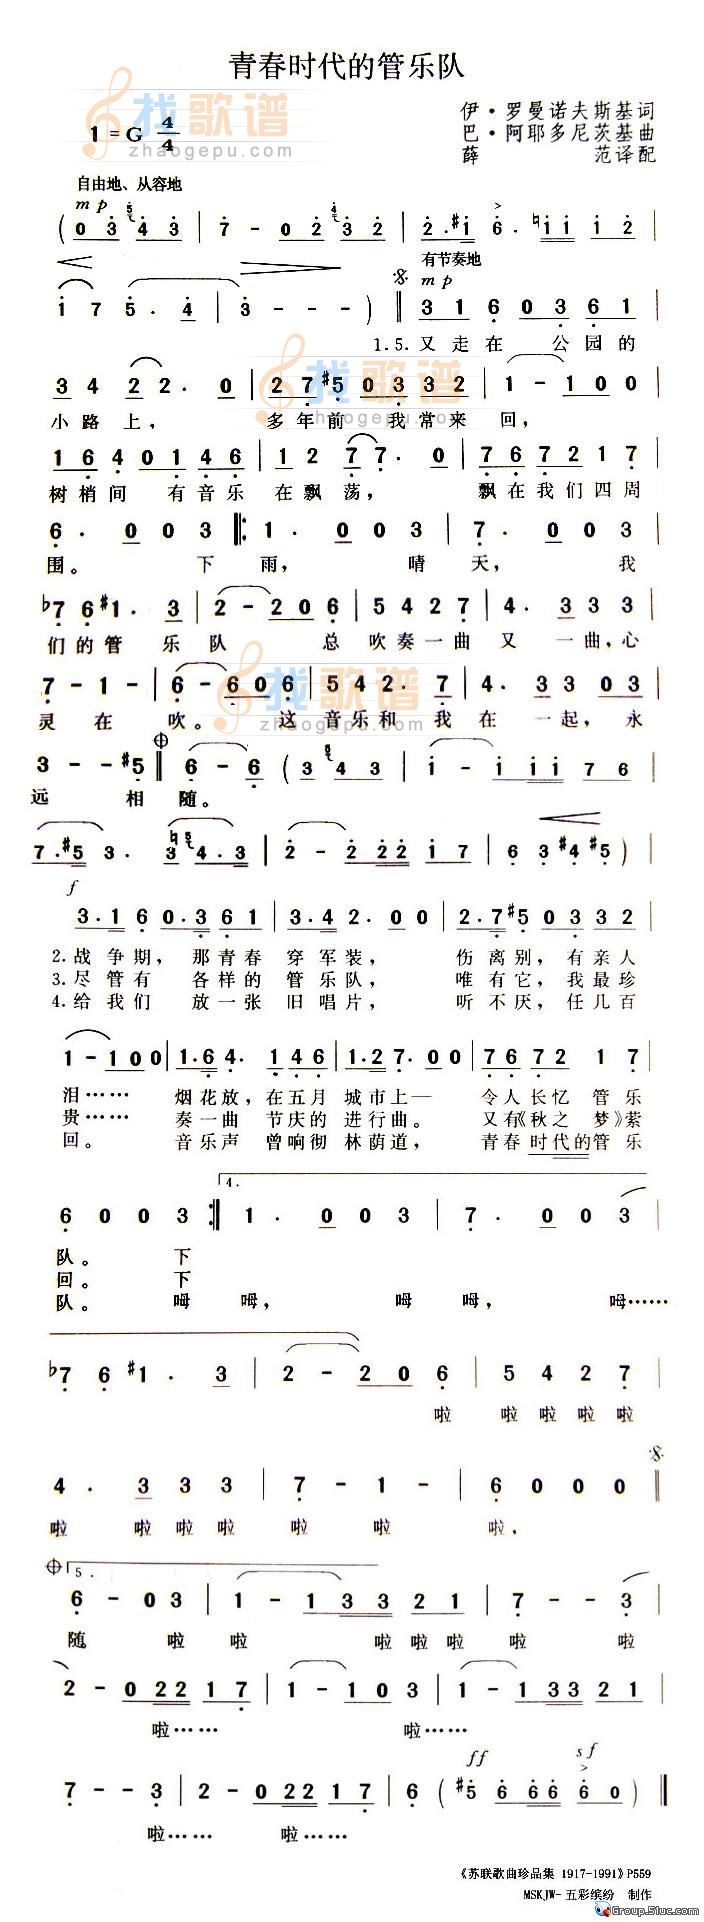 青春时代的管乐队
伊·罗曼诺夫斯基词
1=G 4/4
巴·阿耶多尼茨基曲
薛 范译配
找歌谱
zhaogepu.com
自由地、从容地
mp
有节奏地
mp
1.5.又走在 公园的
找歌谱
zhaogepu.com
小路上， 多年前 我常来 回，
树梢间 有音乐 在飘荡， 飘在我们四周
围。 下 雨， 晴 天， 我
们的管 乐 队 总 吹奏一曲 又 一曲，心
找歌谱
zhaogepu.com
灵 在 吹。 这 音乐和 我 在 一 起， 永
远 相 随。
f
2.战争期，那青春 穿军装， 伤离别，有亲人
3.尽管有 各样的 管乐队， 唯有它，我最珍
4.给我们 放一张 旧唱片， 听不厌，任几百
泪…… 烟花放，在五月 城市上— 令人长忆 管乐
贵…… 奏一曲 节庆的 进行曲。 又有《秋之 梦》萦
回。 音乐声 曾响彻 林荫道， 青春时代的管乐
4.
队。 下
回。 下
队。 呣 呣， 呣 呣， 呣……
啦 啦 啦 啦 啦
啦 啦 啦 啦 啦 啦 啦，
5.
随 啦 啦 啦 啦 啦 啦 啦
啦…… 啦……
ff sf
啦…… 啦……
《苏联歌曲珍品集 1917-1991》P559
MSKJW-五彩缤纷 制作
Group.51uc.com